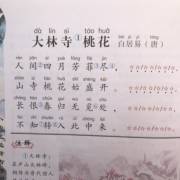 dà lín sì táo huā
大林寺①桃花
bái jū yì táng
白居易(唐)
rén jiān sì yuè fāng fēi jìn
人间四月芳菲尽
shān sì táo huā shǐ shèng kāi
山寺桃花始盛开
cháng hèn chūn guī wú mì chù
长恨春归无觅处
bù zhī zhuǎn rù cǐ zhōng lái
不知转入此中来
注释
①大林寺